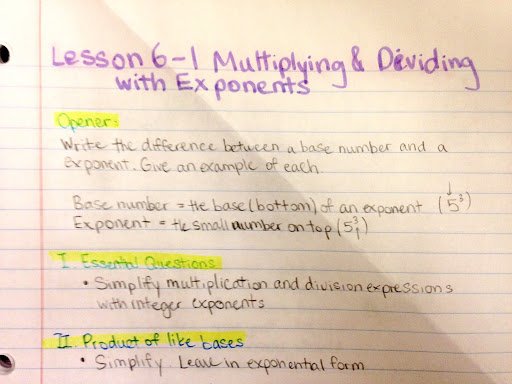 Lesson 6-1 Multiplying & Dividing
with Exponents
Opener:
Write the difference between a base number and a
exponent. Give an example of each.
Base number = the base (bottom) of an exponent (5³)
Exponent = the small number on top (5³)
I. Essential Questions
• Simplify multiplication and division expressions
with integer exponents
II. Product of like bases
• Simplify. Leave in exponential form